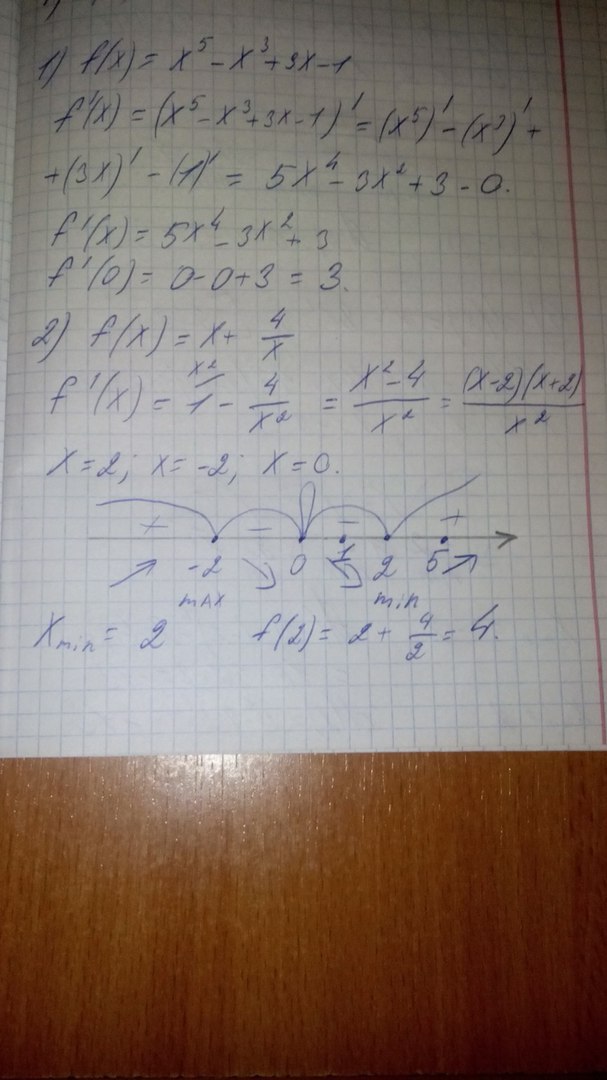 1) f(x) = x⁵ - x³ + 3x - 1
f'(x) = (x⁵ - x³ + 3x - 1)' = (x⁵)' - (x³)' +
+ (3x)' - (1)' = 5x⁴ - 3x² + 3 - 0.
f'(x) = 5x⁴ - 3x² + 3
f'(0) = 0 - 0 + 3 = 3.
2) f(x) = x + 4/x
f'(x) = 1 - 4/x² = x² - 4/x² = (x-2)(x+2)/x²
x = 2; x = -2; x = 0.
+ - - +
-2 0 1 2 5
max min
Xmin = 2 f(2) = 2 + 4/2 = 4.